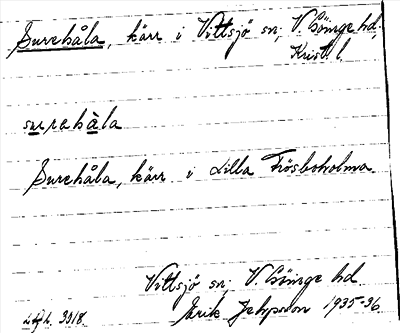 Surehåla, kärr i Vittsjö sn; V. Göinge hd;
Krist. l.
surahàla
Surehåla, kärr i Lilla Frösboholma.
Vittsjö sn; V. Göinge hd.
3318. Erik Jeppsson 1935-36.